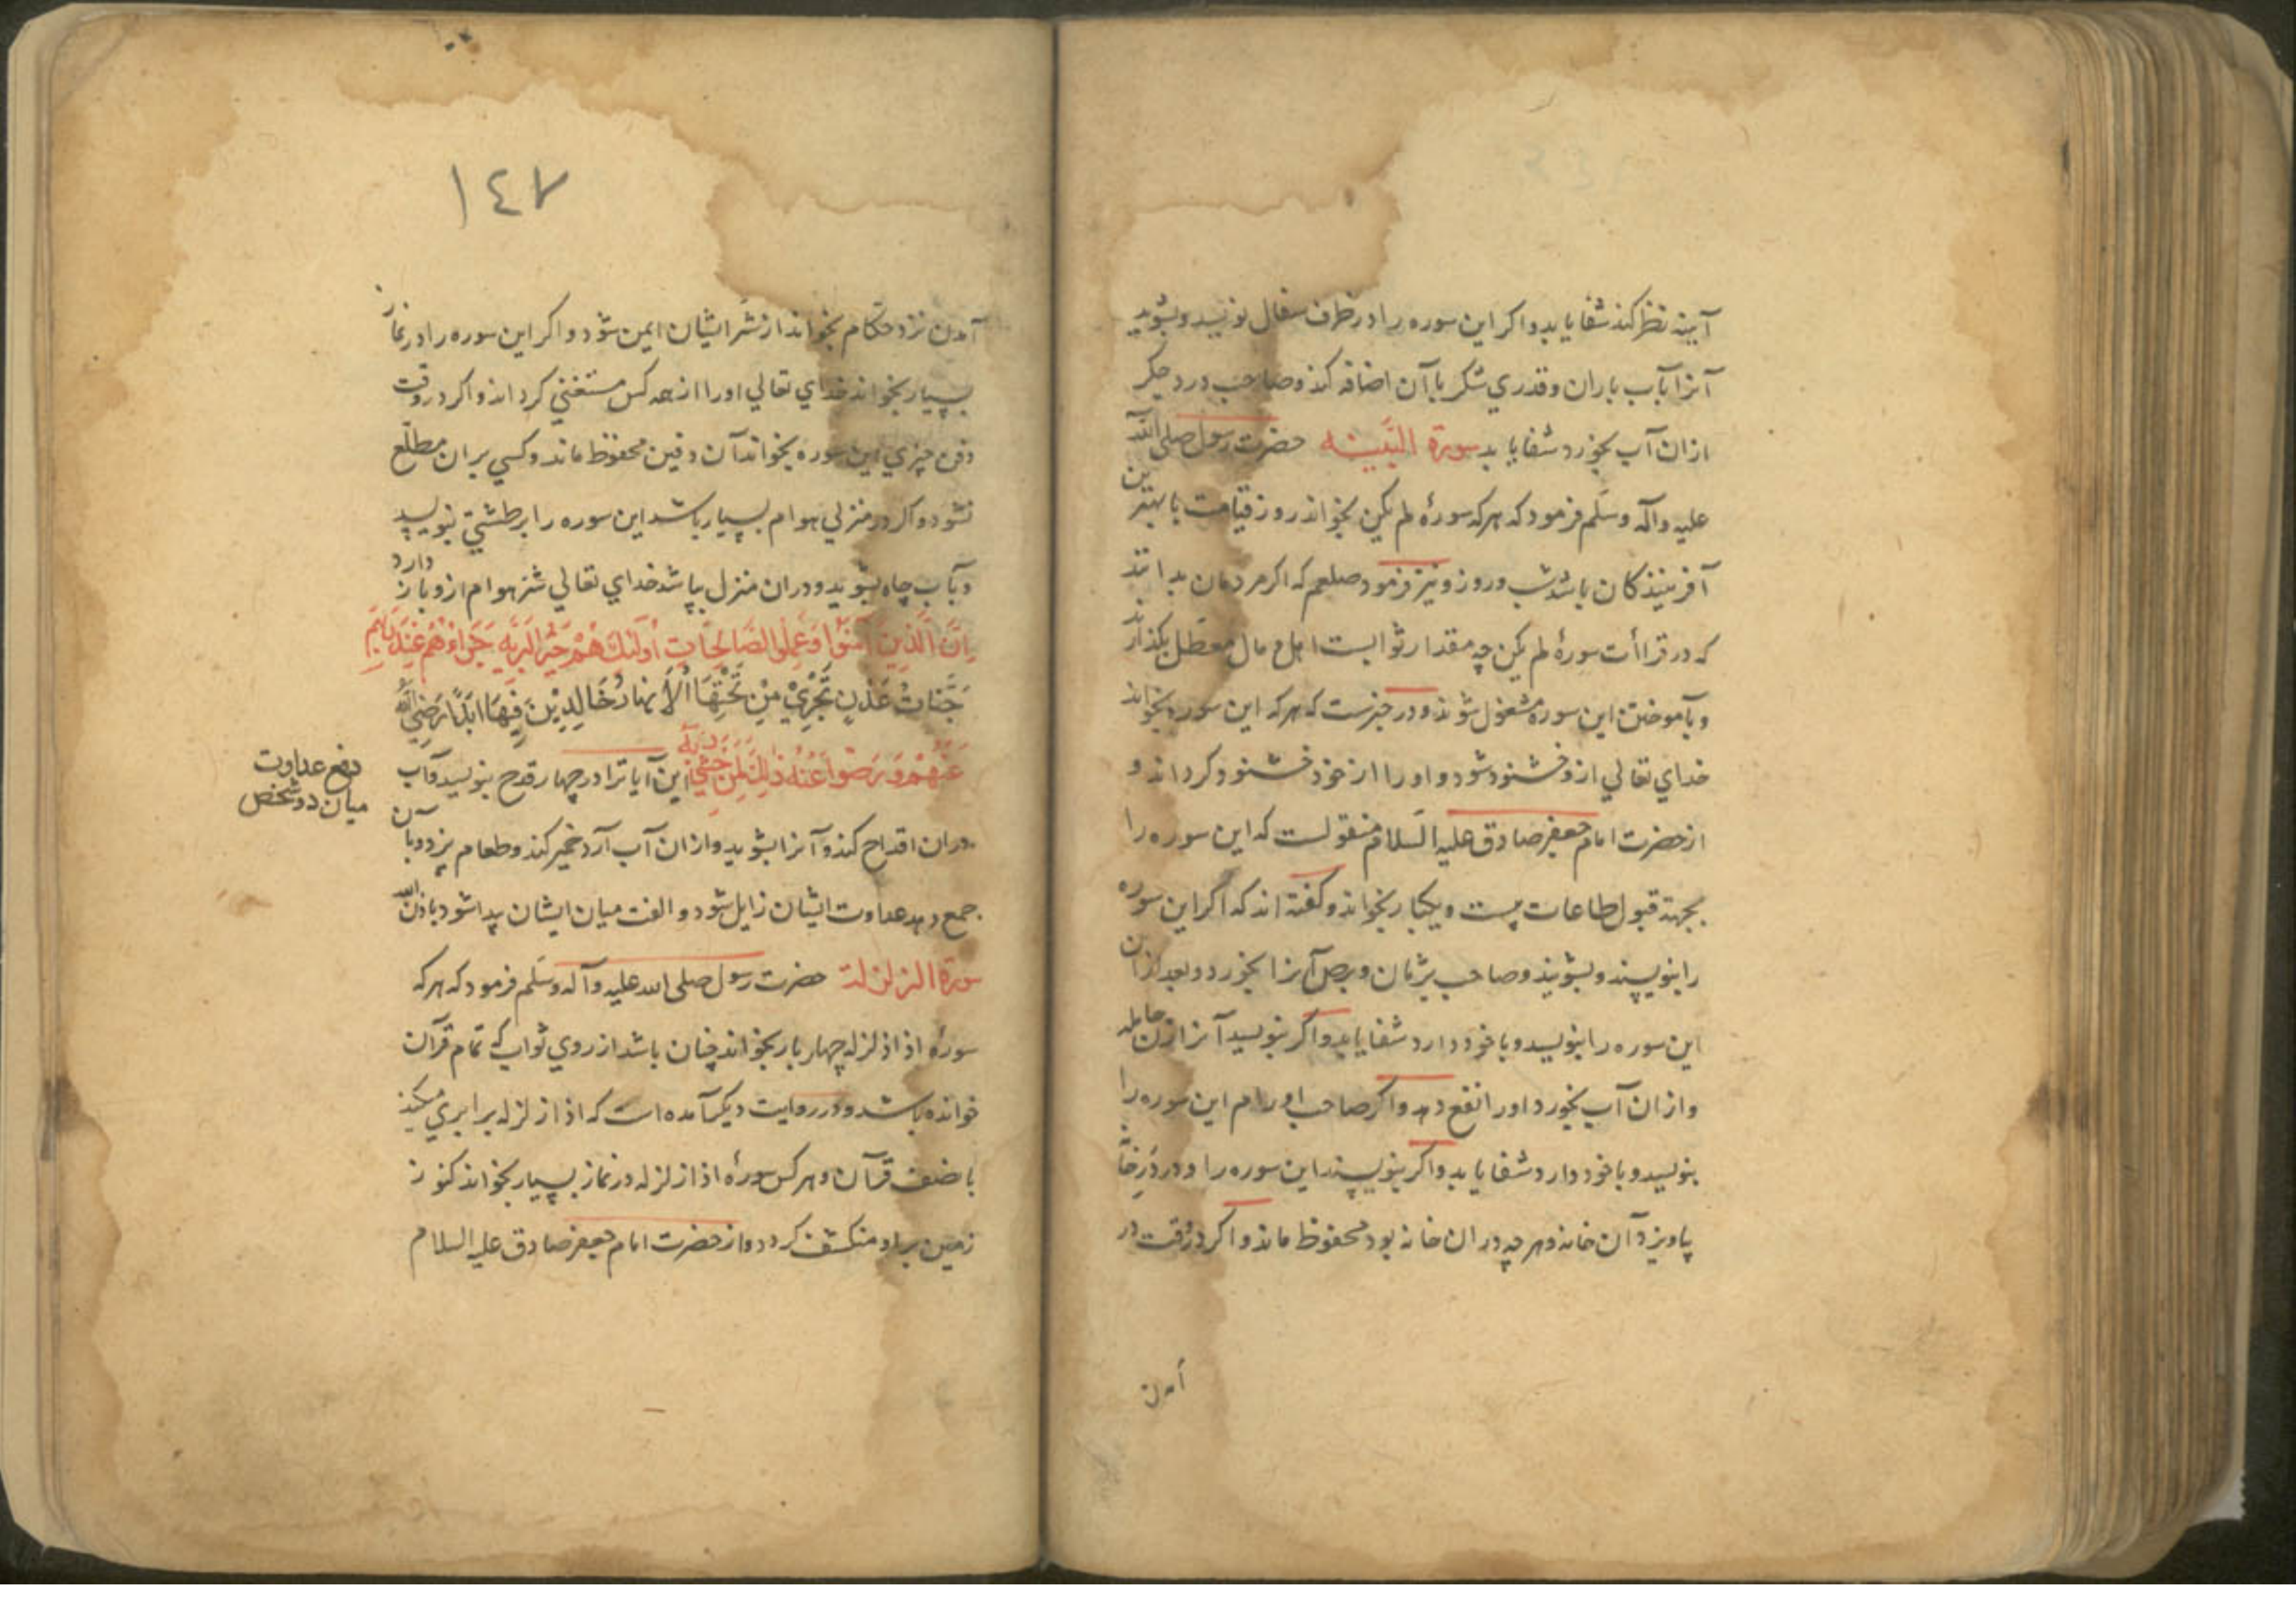 آینه نظر کند شفا یابد و اکر این سوره را در ظرف سفال نویسد و بشوید
آنرا بآب باران و قدری شکر با آن اضافه کند و صاحب درد جکر
ازان آب بخورد شفا یابد سورة البینه حضرت رسول صلی الله
علیه وآله وسلم فرمود که هرکه سورهٔ لم یکن بخواند روز قیامت با بهترین
آفرینندکان باشد شب و روز و نیز فرمود صلعم که اکر مردمان بدانند
که در قراأت سورهٔ لم یکن چه مقدار ثوابست اهل و مال معطل بکذارند
و بآموختن این سوره مشغول شوند و در خبرست که هرکه این سوره بخواند
خدای تعالی ازو خشنود شود و او را از خود خشنود کرداند و
از حضرت امام جعفر صادق علیه السلام منقولست که این سوره را
بجهة قبول طاعات بیست و یکبار بخواند و کفته اند که اکر این سوره
را بنویسند و بشویند و صاحب یرقان و برص آنرا بخورد و بعد ازان
این سوره را بنویسد و با خود دارد شفا یابد و اکر بنویسد آنرا زن حامله
و ازان آب بخورد او را نفع دهد و اکر صاحب اورام این سوره را
بنویسد و با خود دارد شفا یابد و اکر بنویسند این سوره را و در در خانه
بیاویزد آن خانه و هرچه دران خانه بود محفوظ ماند و اکر در وقت در
آمدن
١٤٧
آمدن نزد حکام بخواند از شر ایشان ایمن شود و اکر این سوره را در نماز
بسیار بخواند خدای تعالی او را از همه کس مستغنی کرداند و اکر در وقت
دفن چیزی این سوره بخواند آن دفین محفوظ ماند و کسی بران مطلع
نشود و اکر در منزلی هوام بسیار باشد این سوره را بر طشتی بنویسد
و بآب چاه بشوید و دران منزل بپاشد خدای تعالی شر هوام ازو باز دارد
اِنَّ الَّذِینَ آمَنُوا وَعَمِلُوا الصَّالِحَاتِ اُولٰئِكَ هُمْ خَیْرُ الْبَرِیَّهِ جَزَاءُهُمْ عِنْدَ رَبِّهِمْ
جَنَّاتُ عَدْنٍ تَجْرِیْ مِنْ تَحْتِهَا الْاَنهَارُ خَالِدِیْنَ فِیْهَا اَبَدًا رَضِیَ اللّٰهُ
عَنْهُمْ وَرَضُوْا عَنْهُ ذٰلِكَ لِمَنْ خَشِیَ رَبَّهُ این آیاترا در چهار قدح بنویسد و آب
دفع عداوت
میان دو شخص
دران اقداح کند و آنرا بشوید و ازان آب آرد خمیر کند و طعام پزد و بآن
جمع دهد عداوت ایشان زایل شود و الفت میان ایشان پیدا شود باذن الله
سورة الزلزلة حضرت رسول صلی الله علیه وآله وسلم فرمود که هرکه
سورهٔ اذا زلزله چهار بار بخواند چنان باشد از روی ثواب که تمام قرآن
خوانده باشد و در روایت دیکر آمده است که اذا زلزله برابری میکند
با نصف قرآن و هر کس سورهٔ اذا زلزله در نماز بسیار بخواند کنوز
زمین بر او منکشف کردد و از حضرت امام جعفر صادق علیه السلام